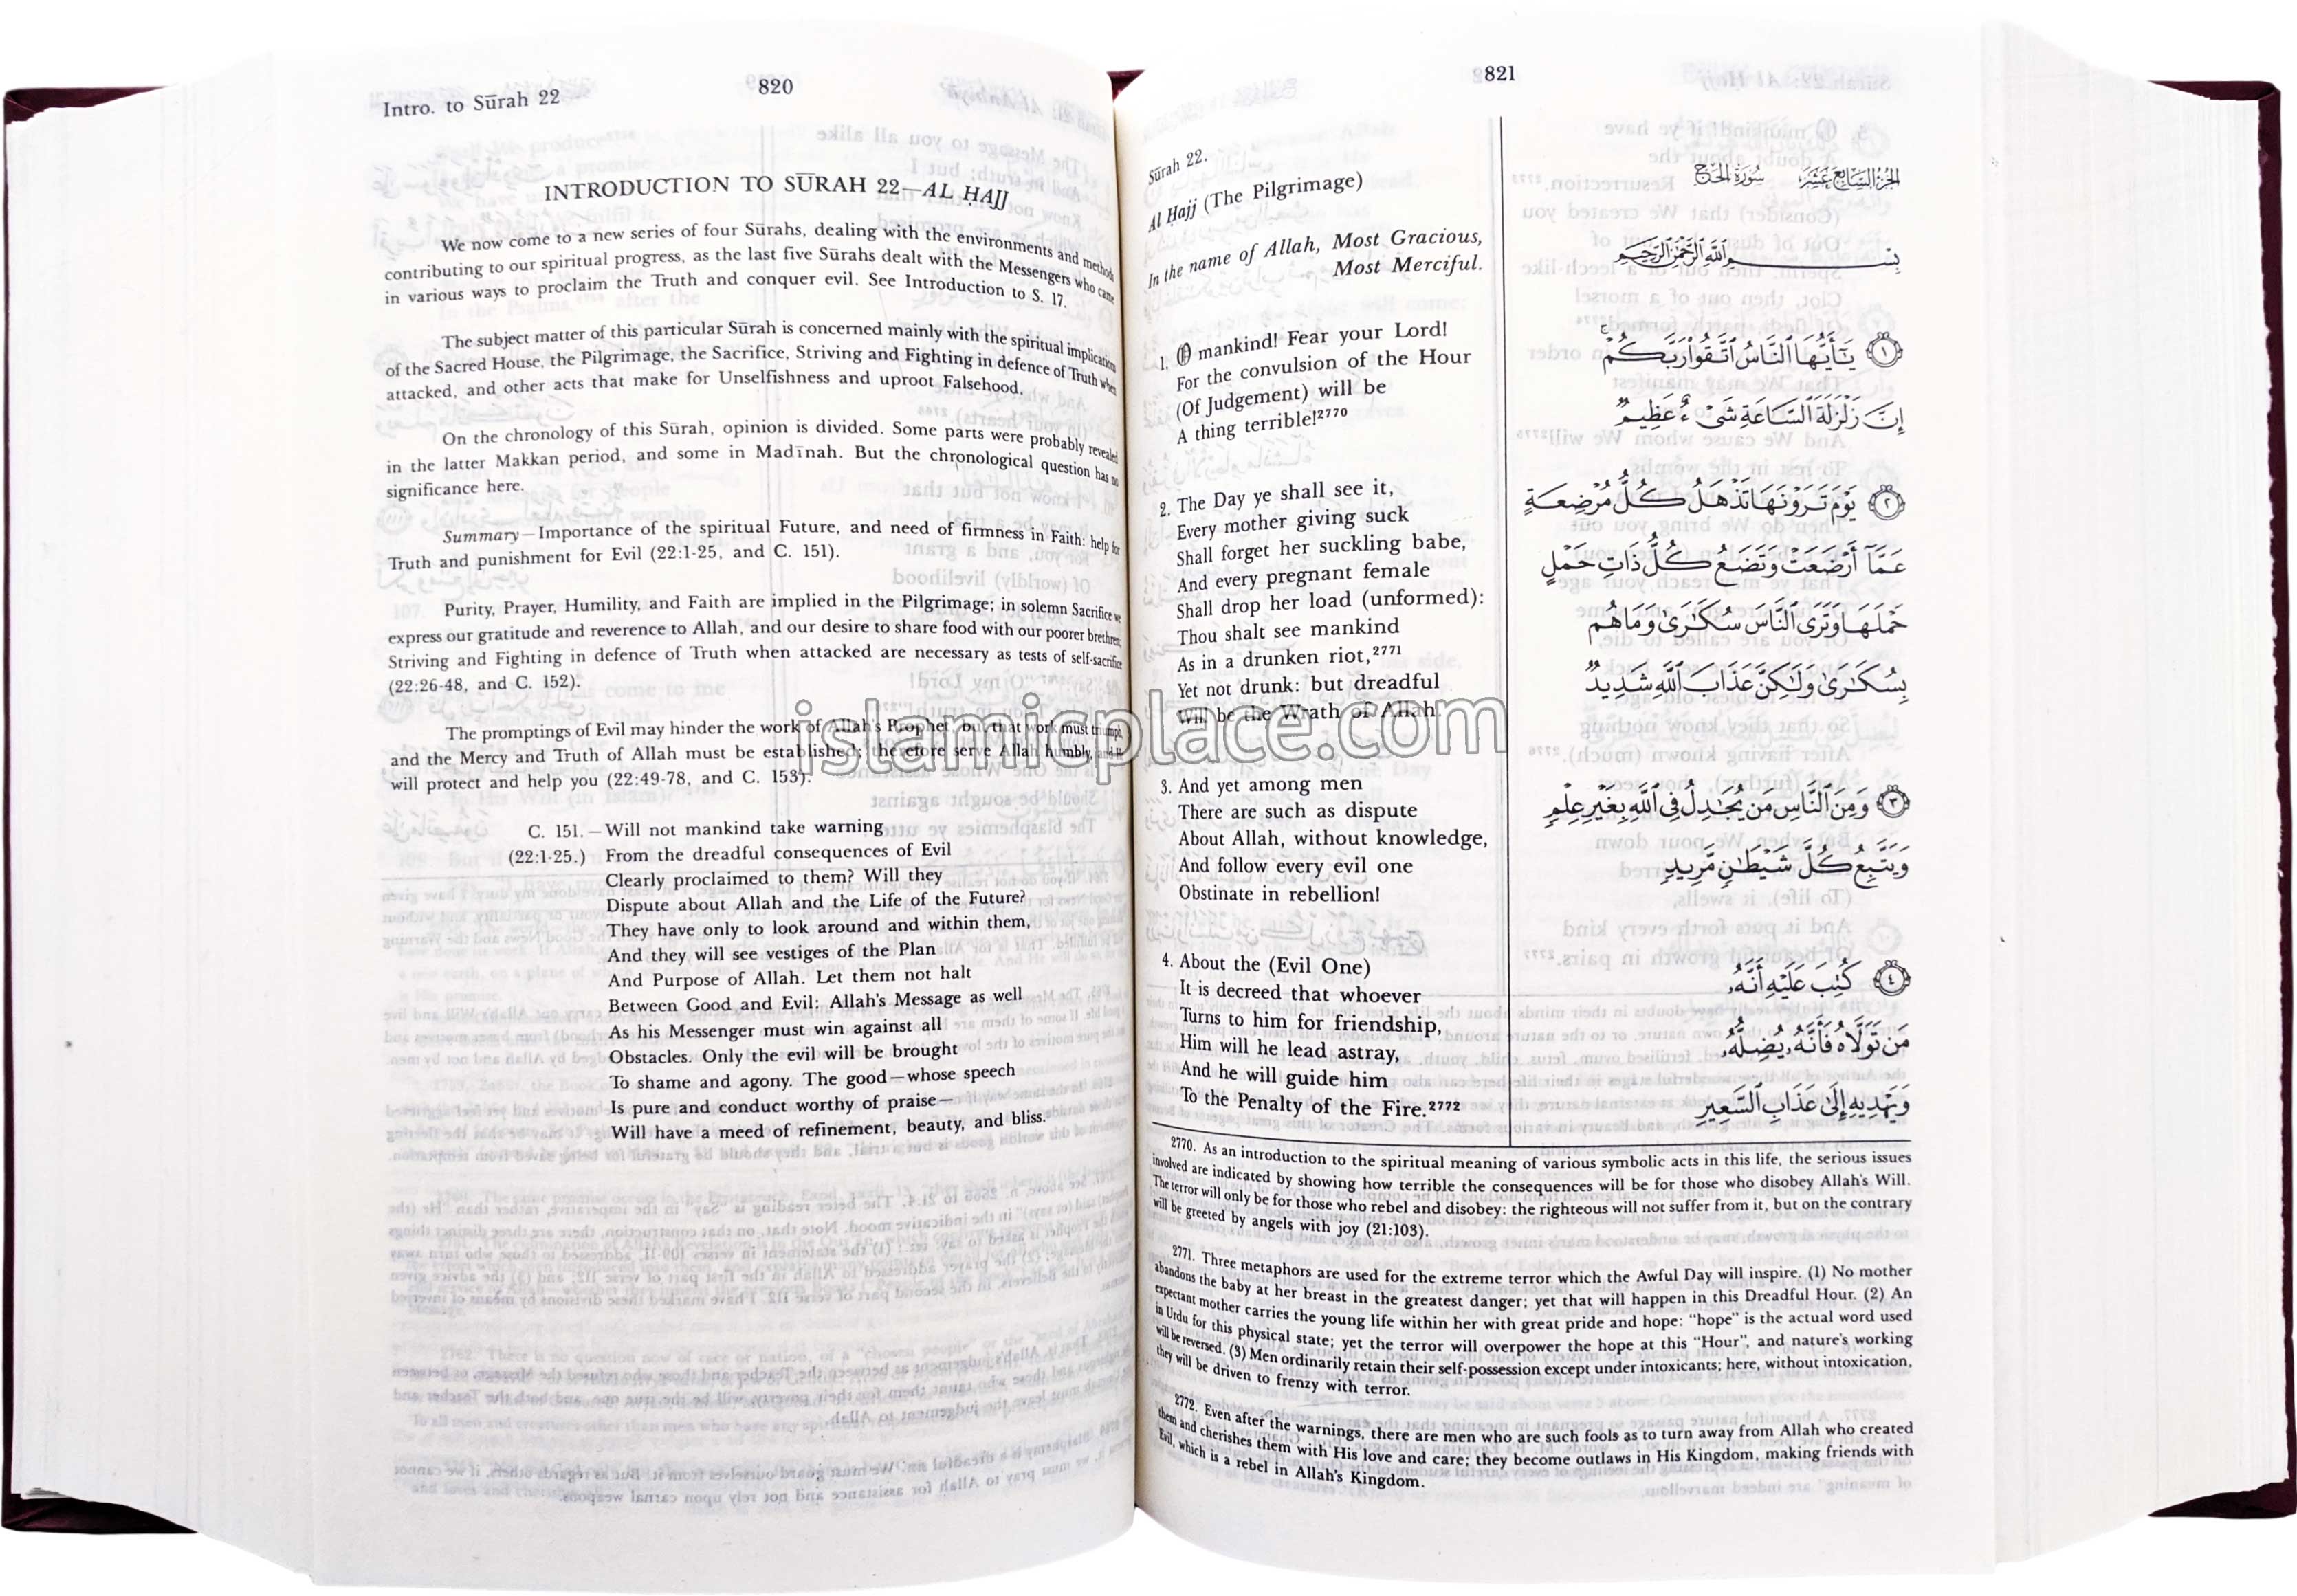 Intro. to Sūrah 22
820
INTRODUCTION TO SŪRAH 22—AL ḤAJJ
We now come to a new series of four Sūrahs, dealing with the environments and methods
contributing to our spiritual progress, as the last five Sūrahs dealt with the Messengers who came
in various ways to proclaim the Truth and conquer evil. See Introduction to S. 17.
The subject matter of this particular Sūrah is concerned mainly with the spiritual implications
of the Sacred House, the Pilgrimage, the Sacrifice, Striving and Fighting in defence of Truth when
attacked, and other acts that make for Unselfishness and uproot Falsehood.
On the chronology of this Sūrah, opinion is divided. Some parts were probably revealed
in the latter Makkan period, and some in Madīnah. But the chronological question has no
significance here.
Summary—Importance of the spiritual Future, and need of firmness in Faith: help for
Truth and punishment for Evil (22:1-25, and C. 151).
Purity, Prayer, Humility, and Faith are implied in the Pilgrimage; in solemn Sacrifice we
express our gratitude and reverence to Allah, and our desire to share food with our poorer brethren;
Striving and Fighting in defence of Truth when attacked are necessary as tests of self-sacrifice
(22:26-48, and C. 152).
The promptings of Evil may hinder the work of Allah's Prophet, but that work must triumph,
and the Mercy and Truth of Allah must be established; therefore serve Allah humbly, and He
will protect and help you (22:49-78, and C. 153).
C. 151.—Will not mankind take warning
(22:1-25.) From the dreadful consequences of Evil
Clearly proclaimed to them? Will they
Dispute about Allah and the Life of the Future?
They have only to look around and within them,
And they will see vestiges of the Plan
And Purpose of Allah. Let them not halt
Between Good and Evil: Allah's Message as well
As his Messenger must win against all
Obstacles. Only the evil will be brought
To shame and agony. The good—whose speech
Is pure and conduct worthy of praise—
Will have a meed of refinement, beauty, and bliss.
821
Sūrah 22.
Al Ḥajj (The Pilgrimage)
In the name of Allah, Most Gracious,
Most Merciful.
1. O mankind! Fear your Lord!
For the convulsion of the Hour
(Of Judgement) will be
A thing terrible!2770
2. The Day ye shall see it,
Every mother giving suck
Shall forget her suckling babe,
And every pregnant female
Shall drop her load (unformed):
Thou shalt see mankind
As in a drunken riot,2771
Yet not drunk: but dreadful
Will be the Wrath of Allah.
3. And yet among men
There are such as dispute
About Allah, without knowledge,
And follow every evil one
Obstinate in rebellion!
4. About the (Evil One)
It is decreed that whoever
Turns to him for friendship,
Him will he lead astray,
And he will guide him
To the Penalty of the Fire.2772
الجزء السابع عشر سورة الحج
بِسْمِ اللَّهِ الرَّحْمَٰنِ الرَّحِيمِ
١ يَٰٓأَيُّهَا ٱلنَّاسُ ٱتَّقُوا۟ رَبَّكُمْ ۚ
إِنَّ زَلْزَلَةَ ٱلسَّاعَةِ شَىْءٌ عَظِيمٌ
٢ يَوْمَ تَرَوْنَهَا تَذْهَلُ كُلُّ مُرْضِعَةٍ
عَمَّآ أَرْضَعَتْ وَتَضَعُ كُلُّ ذَاتِ حَمْلٍ
حَمْلَهَا وَتَرَى ٱلنَّاسَ سُكَٰرَىٰ وَمَا هُم
بِسُكَٰرَىٰ وَلَٰكِنَّ عَذَابَ ٱللَّهِ شَدِيدٌ
٣ وَمِنَ ٱلنَّاسِ مَن يُجَٰدِلُ فِى ٱللَّهِ بِغَيْرِ عِلْمٍ
وَيَتَّبِعُ كُلَّ شَيْطَٰنٍ مَّرِيدٍ
٤ كُتِبَ عَلَيْهِ أَنَّهُۥ
مَن تَوَلَّاهُ فَأَنَّهُۥ يُضِلُّهُۥ
وَيَهْدِيهِ إِلَىٰ عَذَابِ ٱلسَّعِيرِ
2770. As an introduction to the spiritual meaning of various symbolic acts in this life, the serious issues
involved are indicated by showing how terrible the consequences will be for those who disobey Allah's Will.
The terror will only be for those who rebel and disobey: the righteous will not suffer from it, but on the contrary
will be greeted by angels with joy (21:103).
2771. Three metaphors are used for the extreme terror which the Awful Day will inspire. (1) No mother
abandons the baby at her breast in the greatest danger; yet that will happen in this Dreadful Hour. (2) An
expectant mother carries the young life within her with great pride and hope: "hope" is the actual word used
in Urdu for this physical state; yet the terror will overpower the hope at this "Hour", and nature's working
will be reversed. (3) Men ordinarily retain their self-possession except under intoxicants; here, without intoxication,
they will be driven to frenzy with terror.
2772. Even after the warnings, there are men who are such fools as to turn away from Allah who created
them and cherishes them with His love and care; they become outlaws in His Kingdom, making friends with
Evil, which is a rebel in Allah's Kingdom.
islamicplace.com